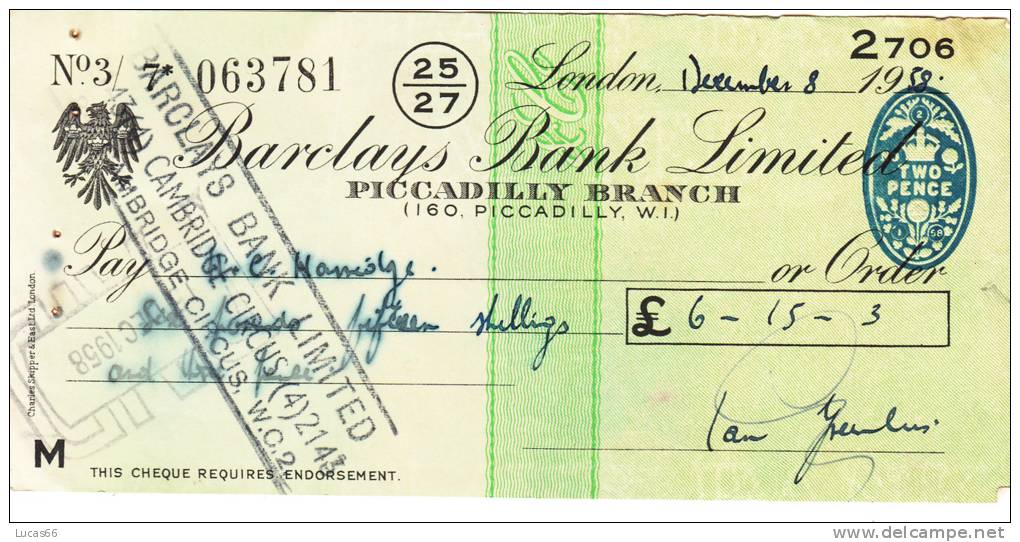 2706
No. 3/ 063781
25
27
London, December 8 1958.
Barclays Bank Limited
PICCADILLY BRANCH
(160, PICCADILLY, W.1.)
TWO
PENCE
2
1
58
Pay Harridge. or Order
fifteen shillings
£ 6 - 15 - 3
and
Ian
M
THIS CHEQUE REQUIRES ENDORSEMENT.
Charles Skipper & East Ltd. London.
BARCLAYS BANK LIMITED
CAMBRIDGE CIRCUS (4) 2143
CAMBRIDGE CIRCUS, W.C.2.
DEC 1958
Lucas66
delcampe.net